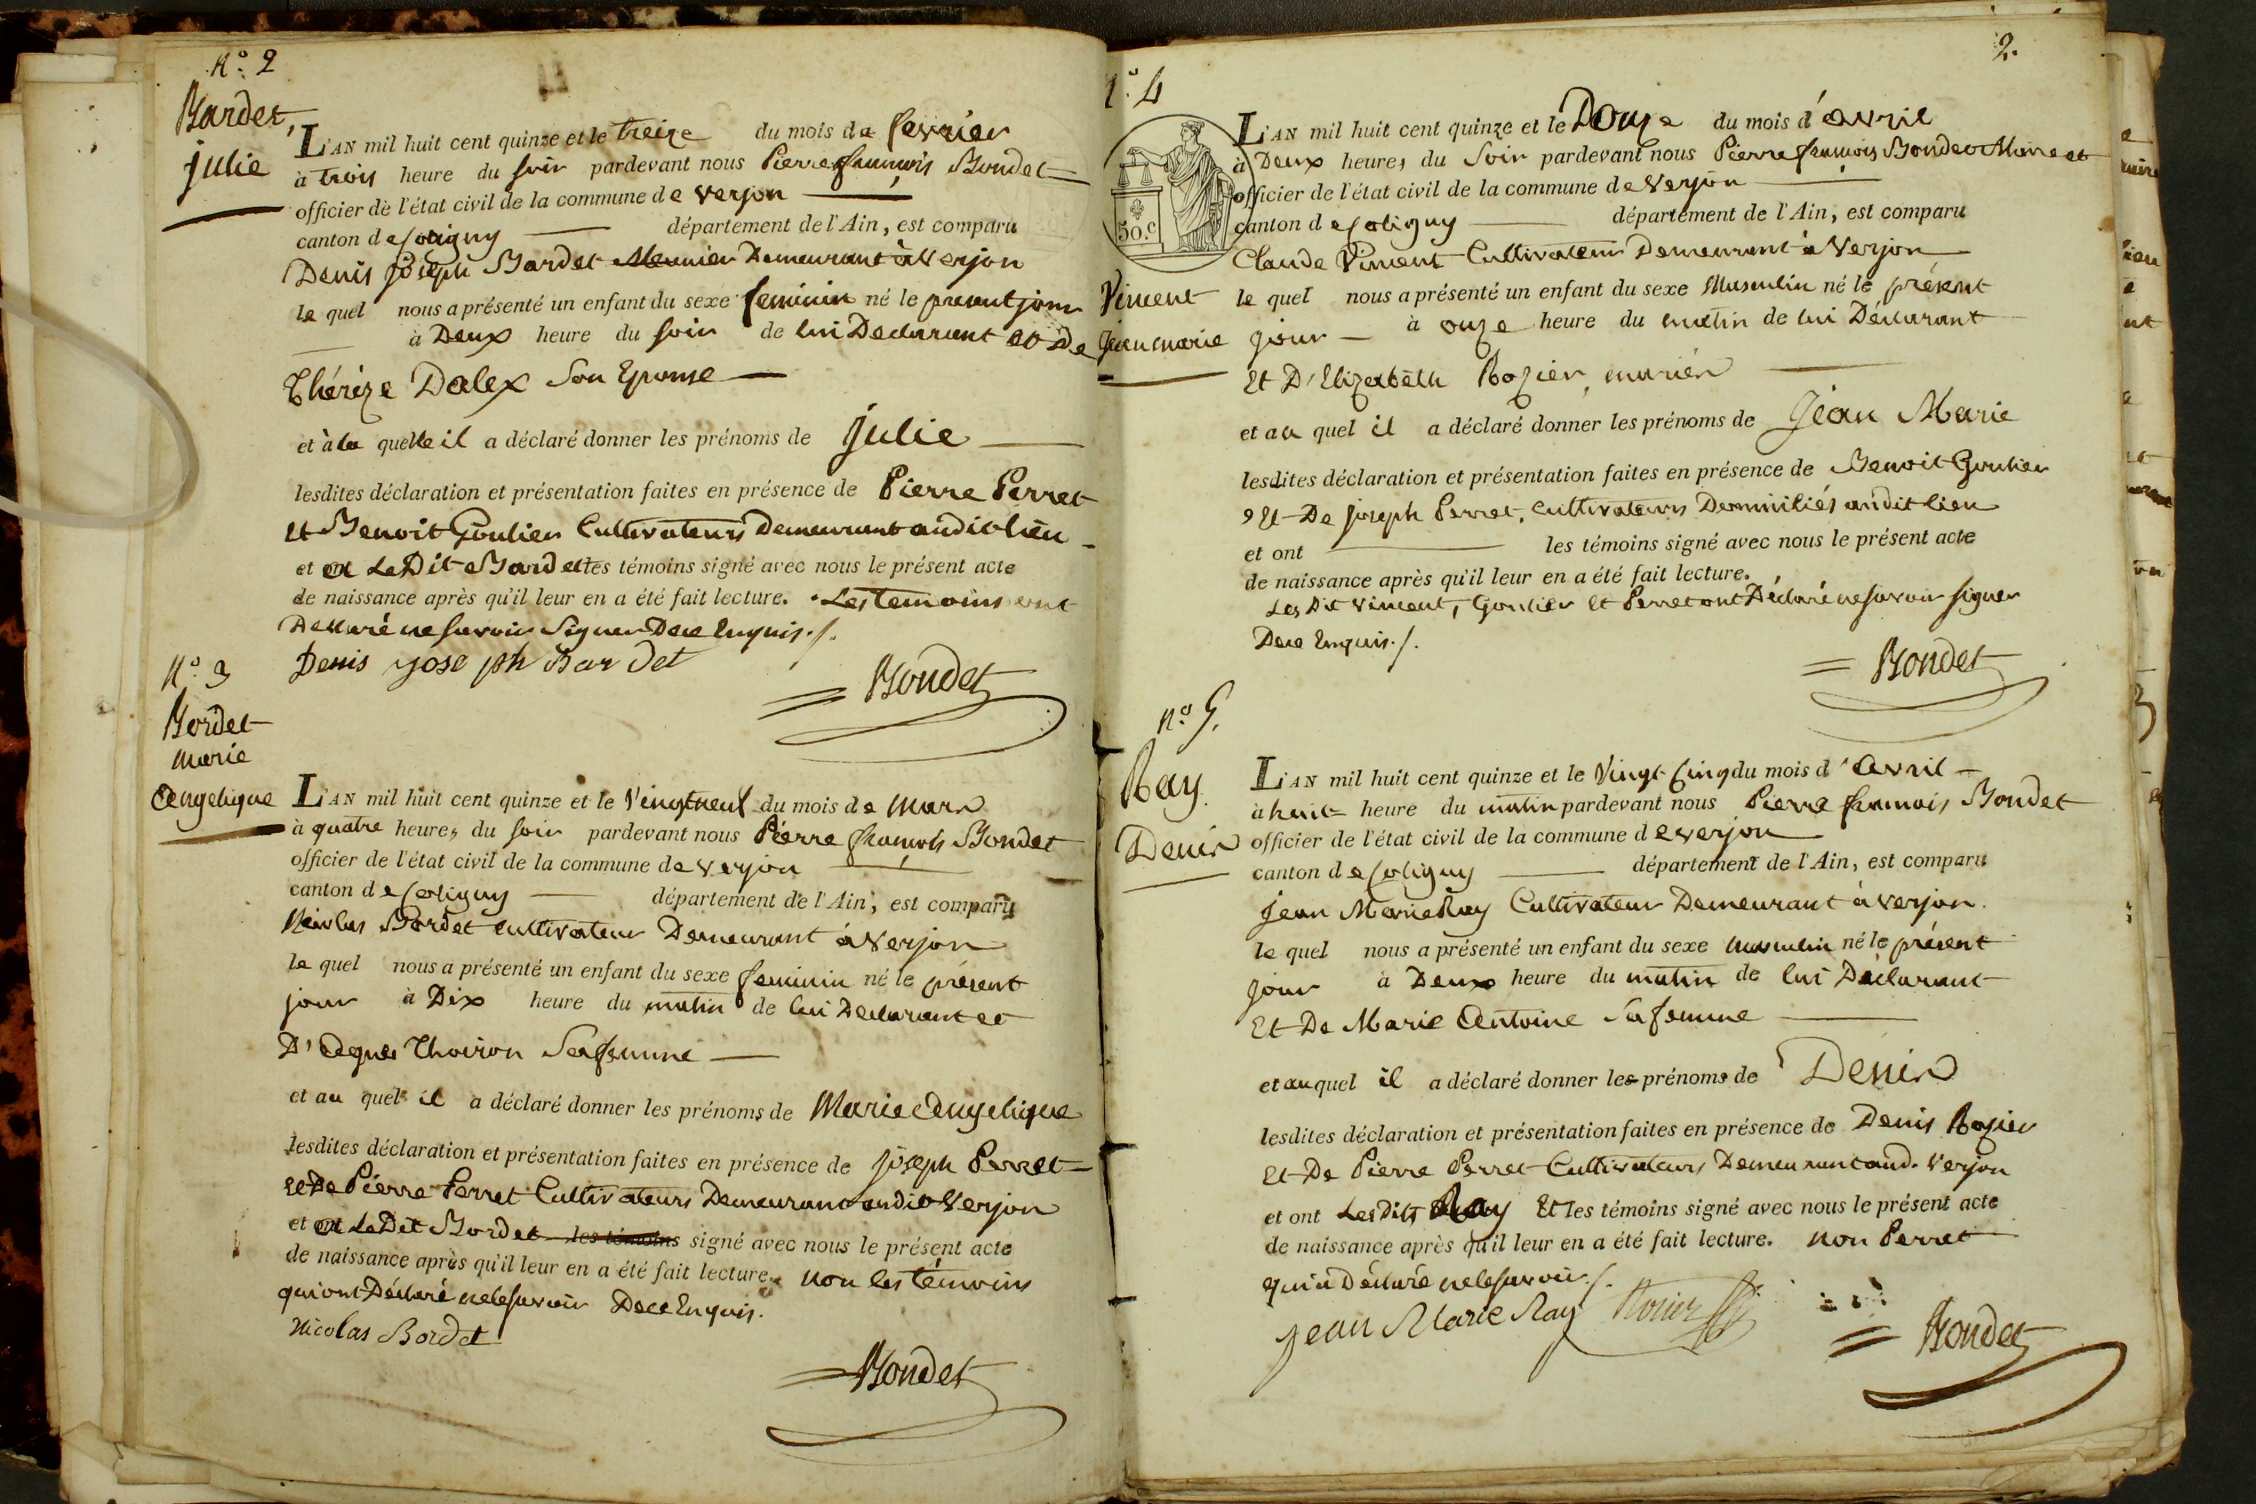 N.° 2
Bardet,
julie
L'AN mil huit cent quinze et le treize du mois de fevrier
à trois heure du soir pardevant nous Pierre françois Bondet
officier de l'état civil de la commune de verjon
canton de Coligny département de l'Ain, est comparu
Denis joseph Bardet Meunier Demeurant à Verjon
le quel nous a présenté un enfant du sexe feminin né le present jour
à Deux heure du soir de lui Declarant et De
Thérèze Dalex Son Epouse
et à la quelle il a déclaré donner les prénoms de julie
lesdites déclaration et présentation faites en présence de Pierre Perret
Et Benoit Goulier Cultivateurs Demeurant audit lieu
et Le Dit Bardet les témoins signé avec nous le présent acte
de naissance après qu'il leur en a été fait lecture. Les Temoins ont
Declaré ne savoir Signer De ce Enquis./.
Denis yose ph Bar det
Bondet
N.° 3
Bordet
Marie
Angelique
L'AN mil huit cent quinze et le Vingt neuf du mois de Mars
à quatre heures du soir pardevant nous Pierre françois Bondet
officier de l'état civil de la commune de verjon
canton de Coligny département de l'Ain, est comparu
Nicolas Bordet Cultivateur Demeurant à Verjon
le quel nous a présenté un enfant du sexe feminin né le présent
jour à Dix heure du matin de lui Declarant et
D'Agnes Thoiron Sa femme
et au quel il a déclaré donner les prénoms de Marie Angelique
lesdites déclaration et présentation faites en présence de joseph Perret
Et De Pierre Perret Cultivateurs Demeurant audit Verjon
et Le Dit Bordet les témoins signé avec nous le présent acte
de naissance après qu'il leur en a été fait lecture. Non les témoins
qui ont Déclaré ne le savoir De ce Enquis.
Nicolas Bordet
Bondet
2.
N.° 4
50.c
Vincent
Jean marie
L'AN mil huit cent quinze et le Douze du mois d'avril
à Deux heures du Soir pardevant nous Pierre françois Bondet Maire et
officier de l'état civil de la commune de Verjon
canton de Coligny département de l'Ain, est comparu
Claude Vincent Cultivateur Demeurant à Verjon
le quel nous a présenté un enfant du sexe Masculin né le présent
jour à onze heure du matin de lui Déclarant
Et D'Elizabeth Rozier, mariés
et au quel il a déclaré donner les prénoms de Jean Marie
lesdites déclaration et présentation faites en présence de Benoit Goulier
Et De joseph Perret, cultivateurs Domiciliés audit lieu
et ont les témoins signé avec nous le présent acte
de naissance après qu'il leur en a été fait lecture.
Les Dit Vincent, Goulier et Perret ont Déclaré ne savoir signer
De ce Enquis./.
Bondet
N.° 5.
Ray.
Denis
L'AN mil huit cent quinze et le Vingt Cinq du mois d'avril
à huit heure du matin pardevant nous Pierre françois Bondet
officier de l'état civil de la commune de verjon
canton de Coligny département de l'Ain, est comparu
Jean Marie Ray Cultivateur Demeurant à verjon.
le quel nous a présenté un enfant du sexe masculin né le présent
jour à Deux heure du matin de lui Déclarant
Et De Marie Antoine Sa femme
et au quel il a déclaré donner les prénoms de Denis
lesdites déclaration et présentation faites en présence de Denis Rozier
Et De Pierre Perret Cultivateurs Demeurant aud. Verjon
et ont Les Dits Ray Et les témoins signé avec nous le présent acte
de naissance après qu'il leur en a été fait lecture. non Perret
qui a Déclaré ne le savoir./.
Jean Marie Ray Rozier
Bondet